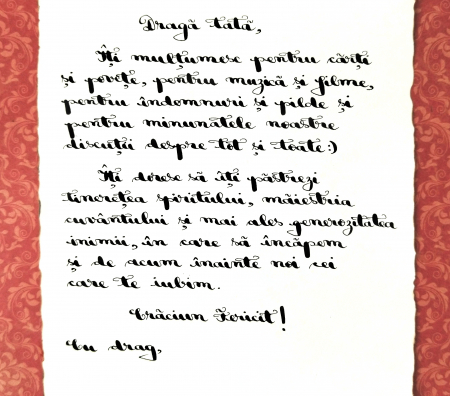 Dragă tată,
Îți mulțumesc pentru cărți
și povețe, pentru muzică și filme,
pentru îndemnuri și pilde și
pentru minunatele noastre
discuții despre tot și toate:)
Îți doresc să îți păstrezi
tinerețea spiritului, măiestria
cuvântului și mai ales generozitatea
inimii, în care să încăpem
și de acum înainte noi cei
care te iubim.
Crăciun Fericit!
Cu drag,